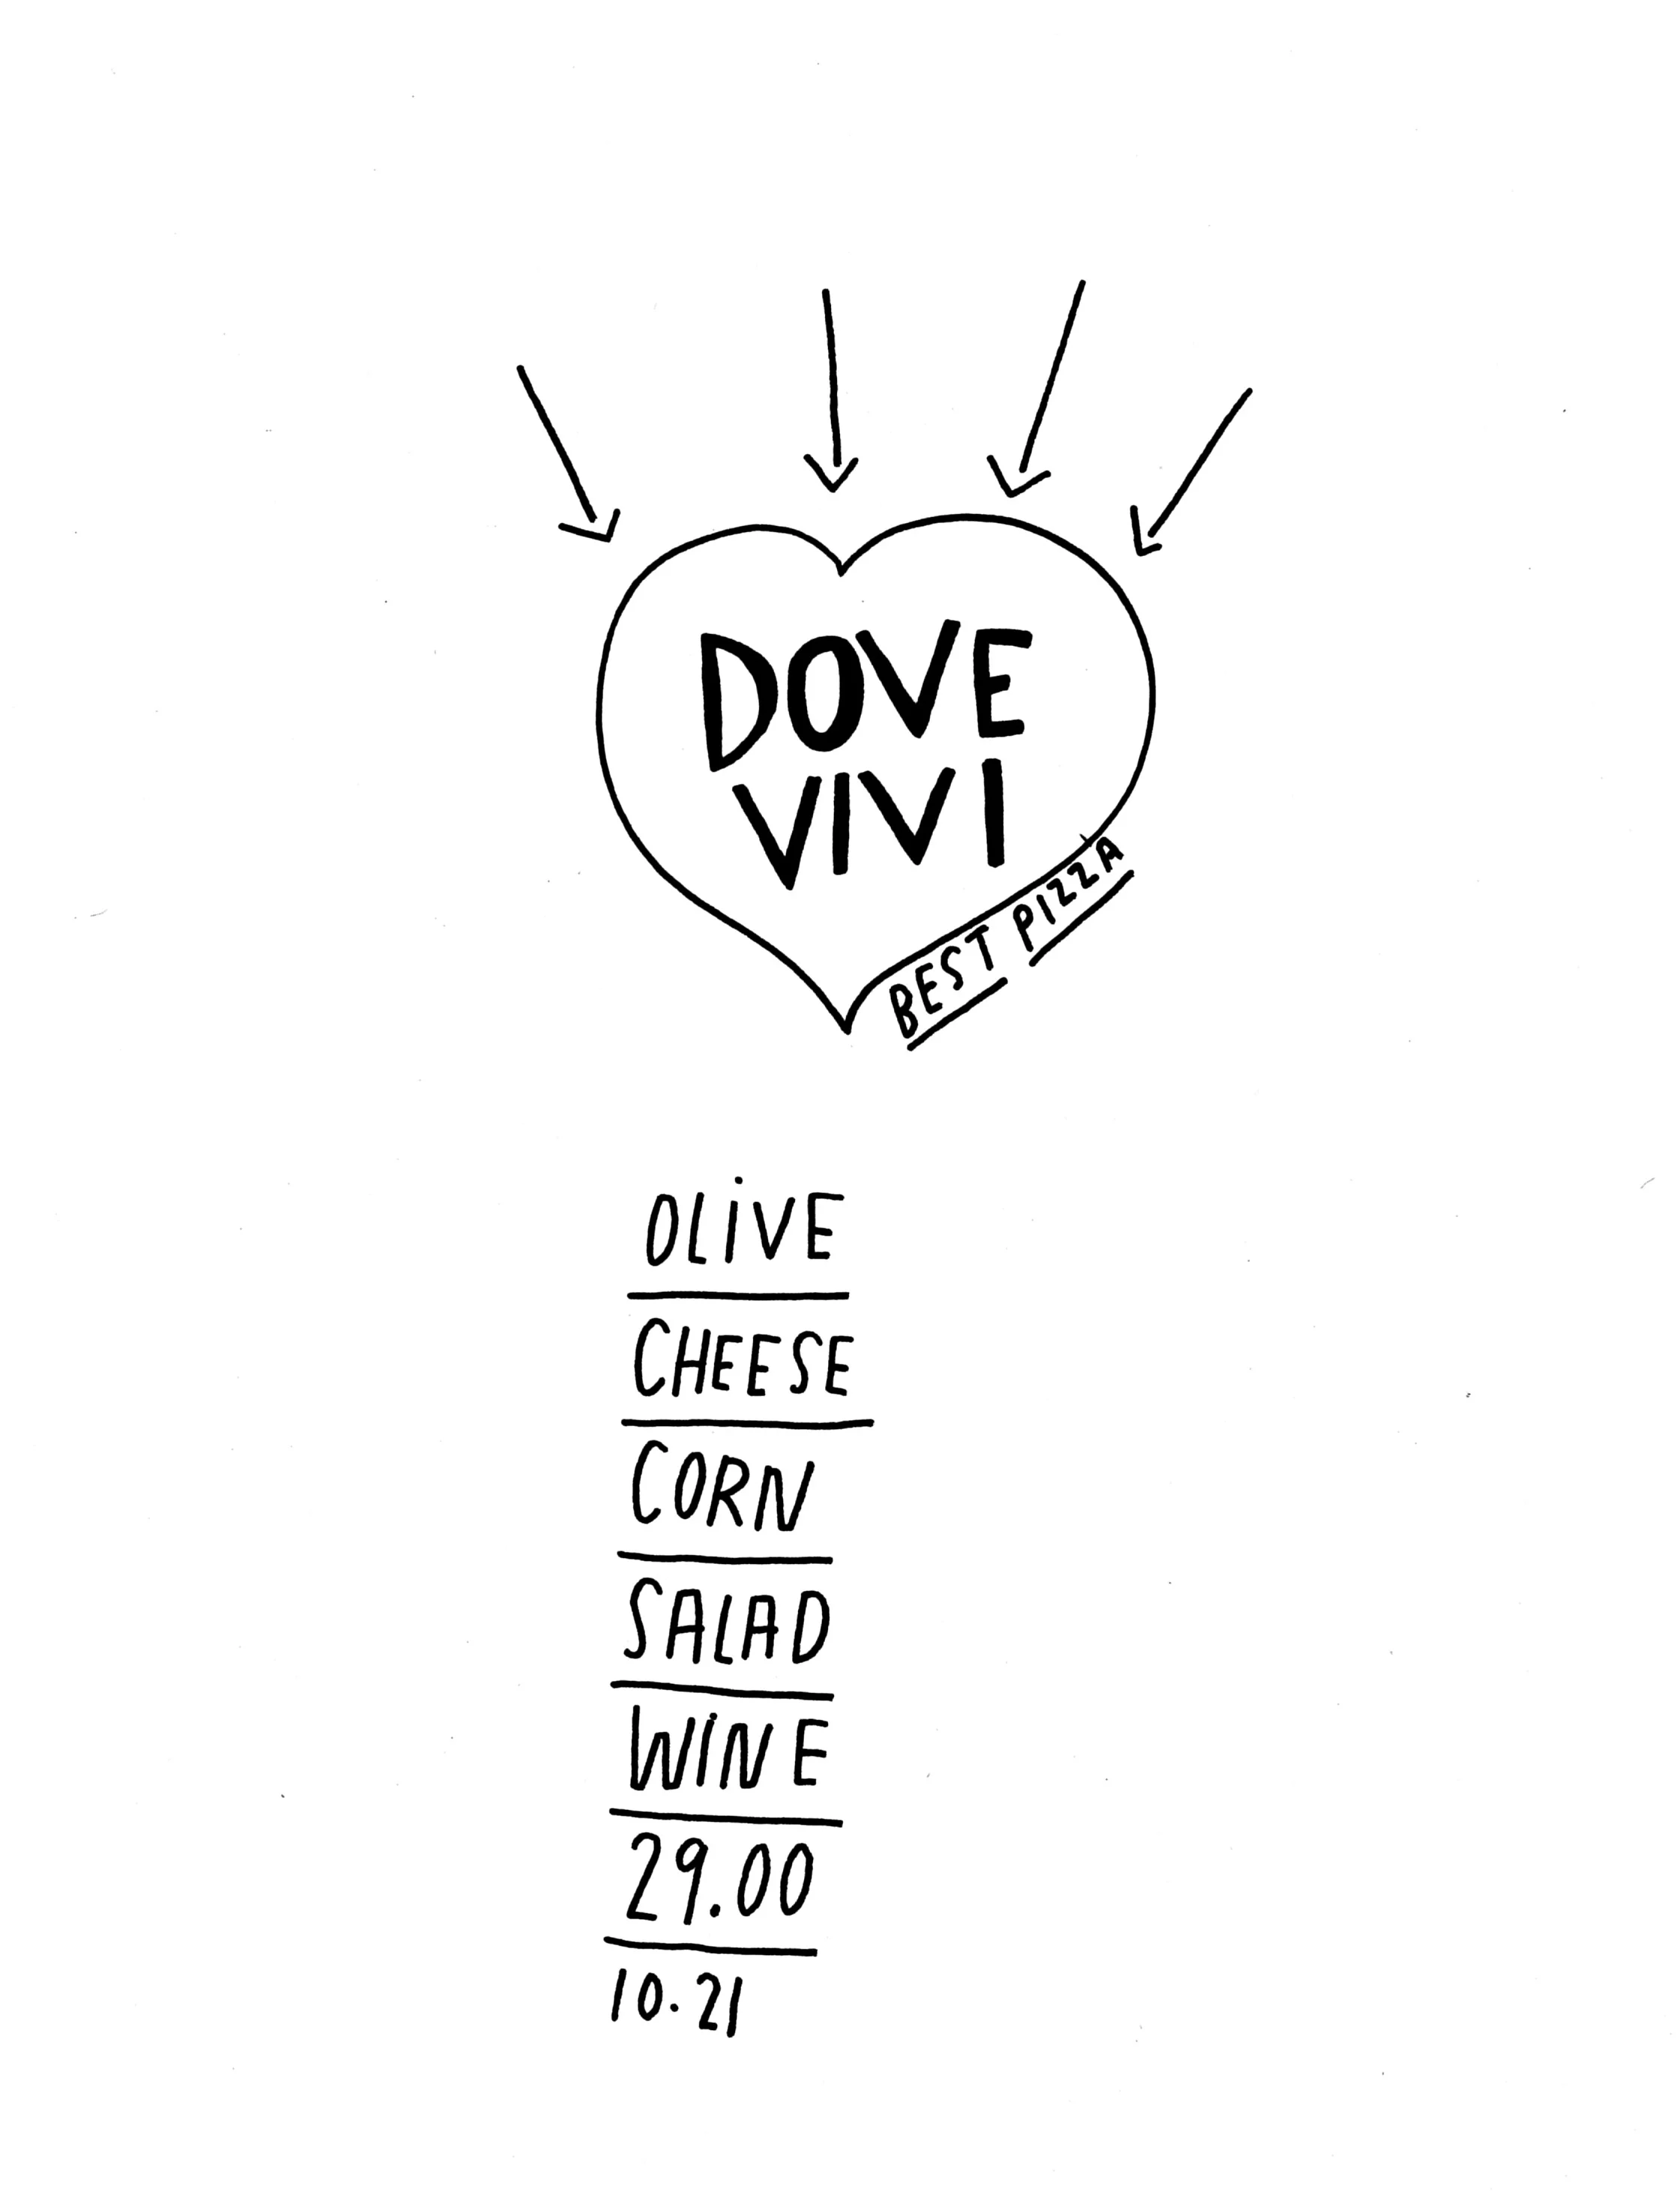 DOVE
VIVI
BEST PIZZA
OLiVE
CHEESE
CORN
SALAD
WiNE
29.00
10.21